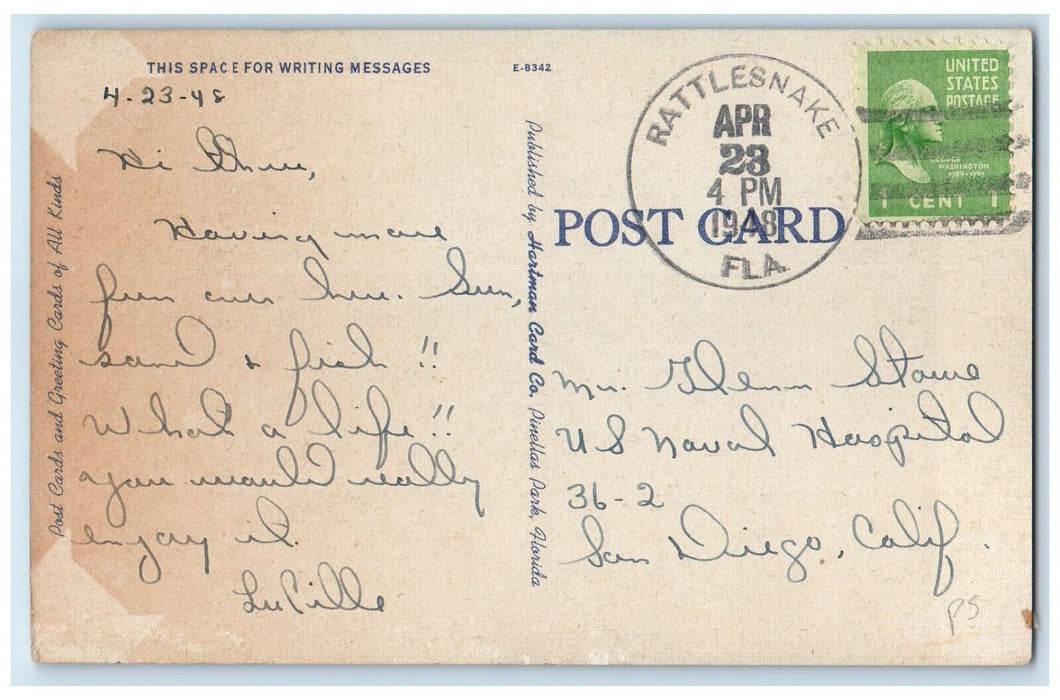 THIS SPACE FOR WRITING MESSAGES
E-8342
4-23-48
Hi There,
Having more
fun over here. Sun,
sand & fish!!
What a life!!
you would really
enjoy it.
LuCille
Post Cards and Greeting Cards of All Kinds
Published by Hartman Card Co. Pinellas Park, Florida
POST CARD
RATTLESNAKE
APR
23
4 PM
1948
FLA.
UNITED
STATES
POSTAGE
GEORGE
WASHINGTON
1789-1797
1 CENT 1
Mr. Glenn Stowe
US Naval Hospital
36-2
San Diego, Calif.
PS